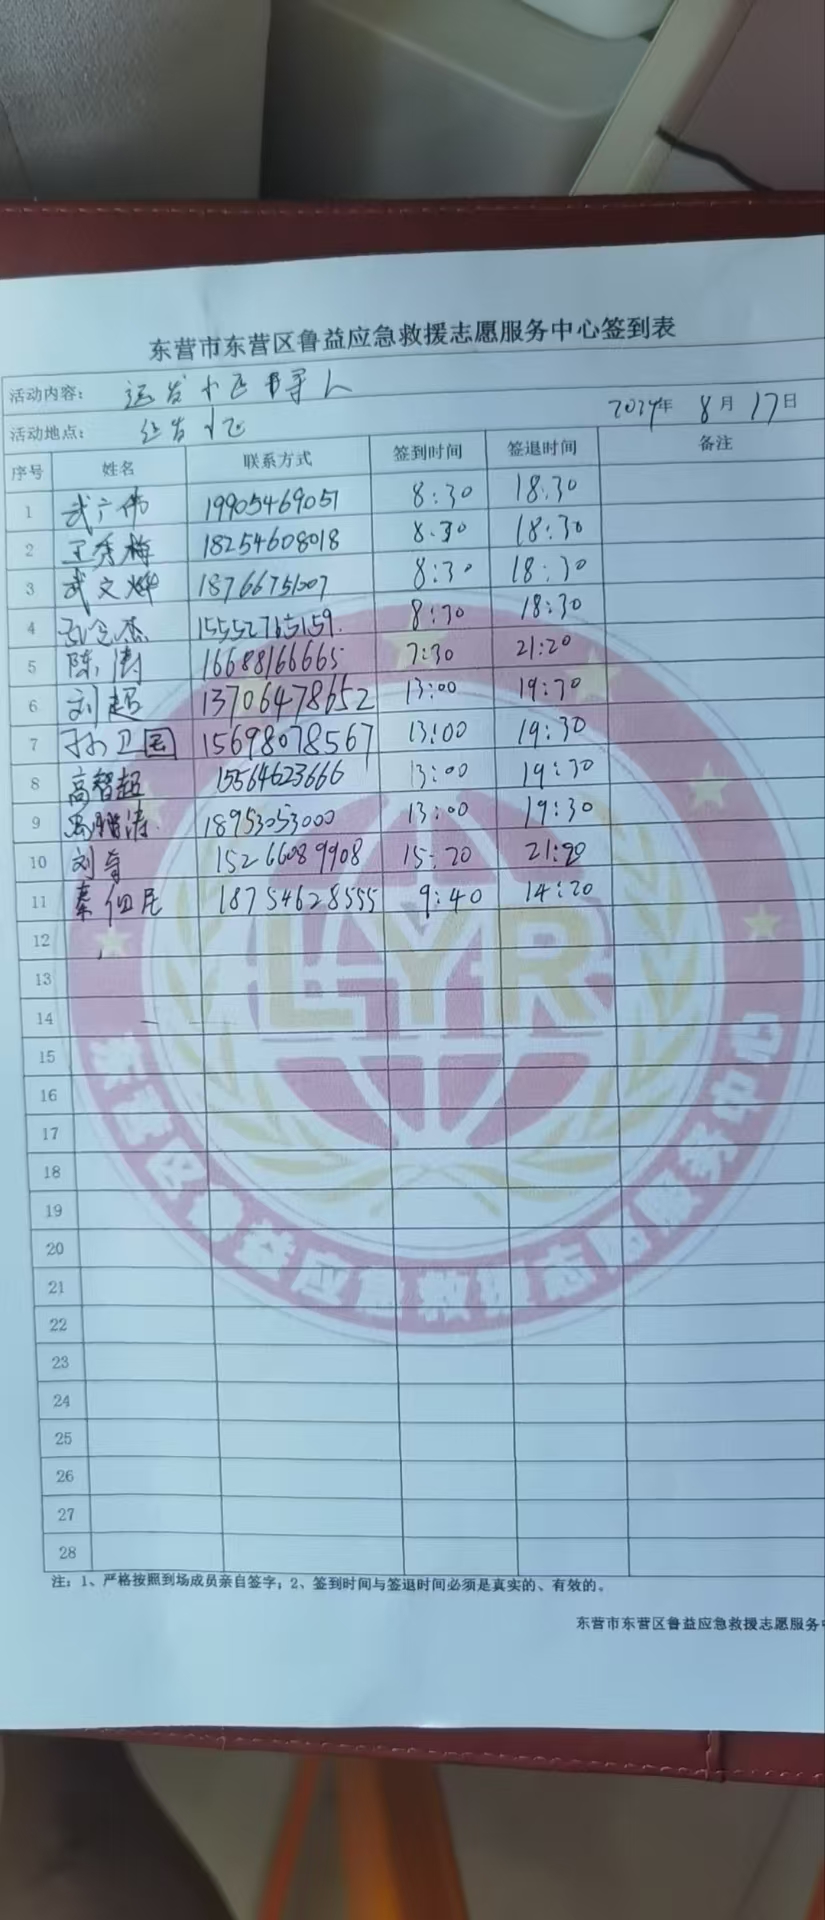 东营市东营区鲁益应急救援志愿服务中心签到表
活动内容: 小区寻人
2024年 8月17日
活动地点:
序号 姓名 联系方式 签到时间 签退时间 备注
1 武广伟 19905469051 8:30 18:30
2 王秀梅 18254608018 8:30 18:30
3 武文 18766751007 8:30 18:30
4 8:30 18:30
5 陈涛 16688166665 7:30 21:20
6 刘超 13706478652 13:00 19:30
7 孙卫国 15698078567 13:00 19:30
8 高智超 15564623666 13:00 19:30
9 18953053000 13:00 19:30
10 刘 15266089908 15:20 21:20
11 秦佃民 18754628555 9:40 14:20
12
13
14
15
16
17
18
19
20
21
22
23
24
25
26
27
28
LYR
东营区鲁益应急救援志愿服务中心
注:1、严格按照到场成员亲自签字;2、签到时间与签退时间必须是真实的、有效的。
东营市东营区鲁益应急救援志愿服务